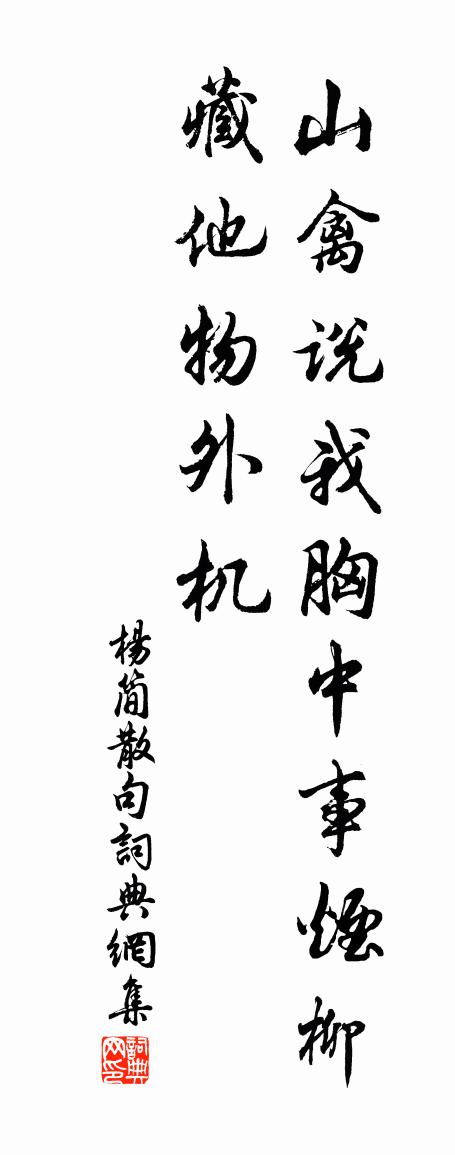 山禽说我胸中事煙柳
藏他物外机
楊简散句詞典網集
詞典网印